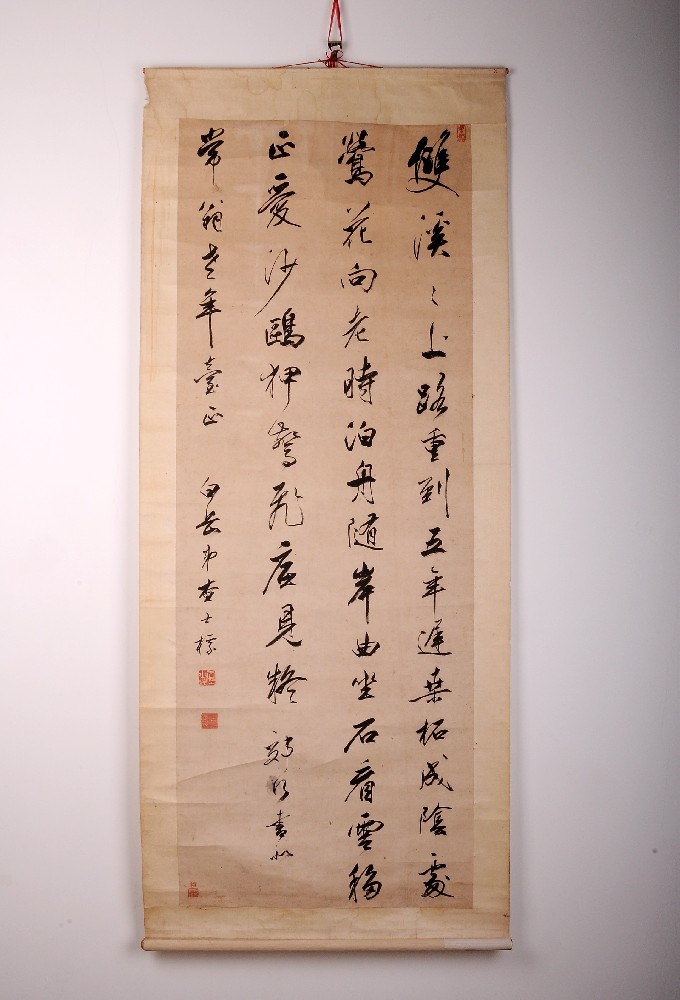 雙溪〻上路重到五年遲桑柘成陰處
鶯花向老時泊舟隨岸曲坐石看雲移
正愛沙鷗狎驚飛見書似
常翁老年臺正 白岳弟查士標